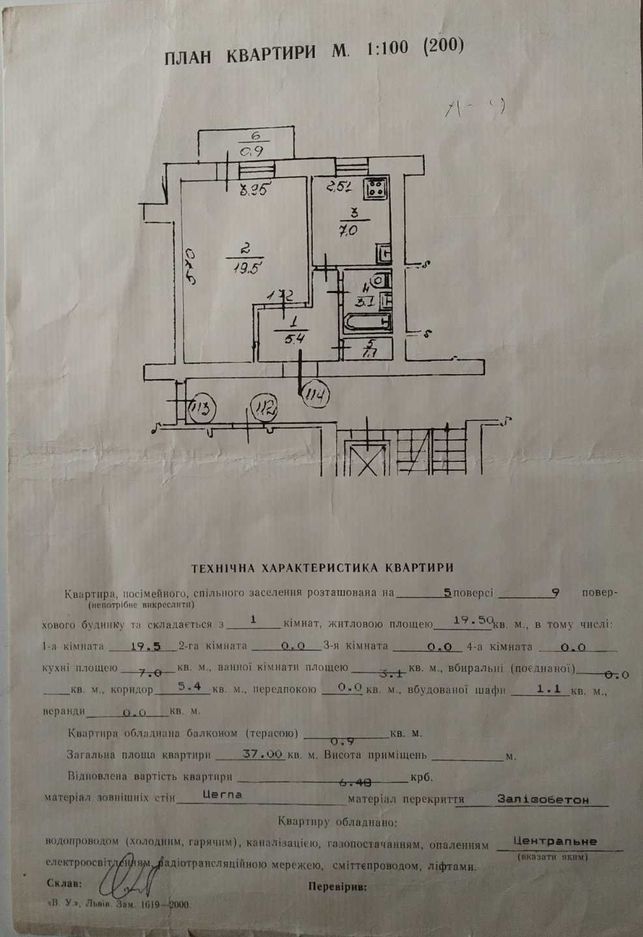 ПЛАН КВАРТИРИ М. 1:100 (200)
6
0.9
3.95
2.51
3
7.0
2
19.5
4
3.1
1.72
1
5.4
5
1.1
113
112
114
ТЕХНІЧНА ХАРАКТЕРИСТИКА КВАРТИРИ
Квартира, посімейного, спільного заселення розташована на 5 поверсі 9 повер-
(непотрібне викреслити)
хового будинку та складається з 1 кімнат, житловою площею 19.50 кв. м., в тому числі:
1-а кімната 19.5 2-га кімната 0.0 3-я кімната 0.0 4-а кімната 0.0
кухні площею 7.0 кв. м., ванної кімнати площею 3.1 кв. м., вбиральні (поєднаної) 0.0
кв. м., коридор 5.4 кв. м., передпокою 0.0 кв. м., вбудованої шафи 1.1 кв. м.,
веранди 0.0 кв. м.
Квартира обладнана балконом (терасою) 0.9 кв. м.
Загальна площа квартири 37.00 кв. м. Висота приміщень м.
Відновлена вартість квартири 6.48 крб.
матеріал зовнішніх стін Цегла матеріал перекриття Залізобетон
Квартиру обладнано:
водопроводом (холодним, гарячим), каналізацією, газопостачанням, опаленням Центральне
(вказати яким)
електроосвітленням, радіотрансляційною мережею, сміттєпроводом, ліфтами.
Склав: Перевірив:
«В. У.», Львів. Зам. 1619—2000.